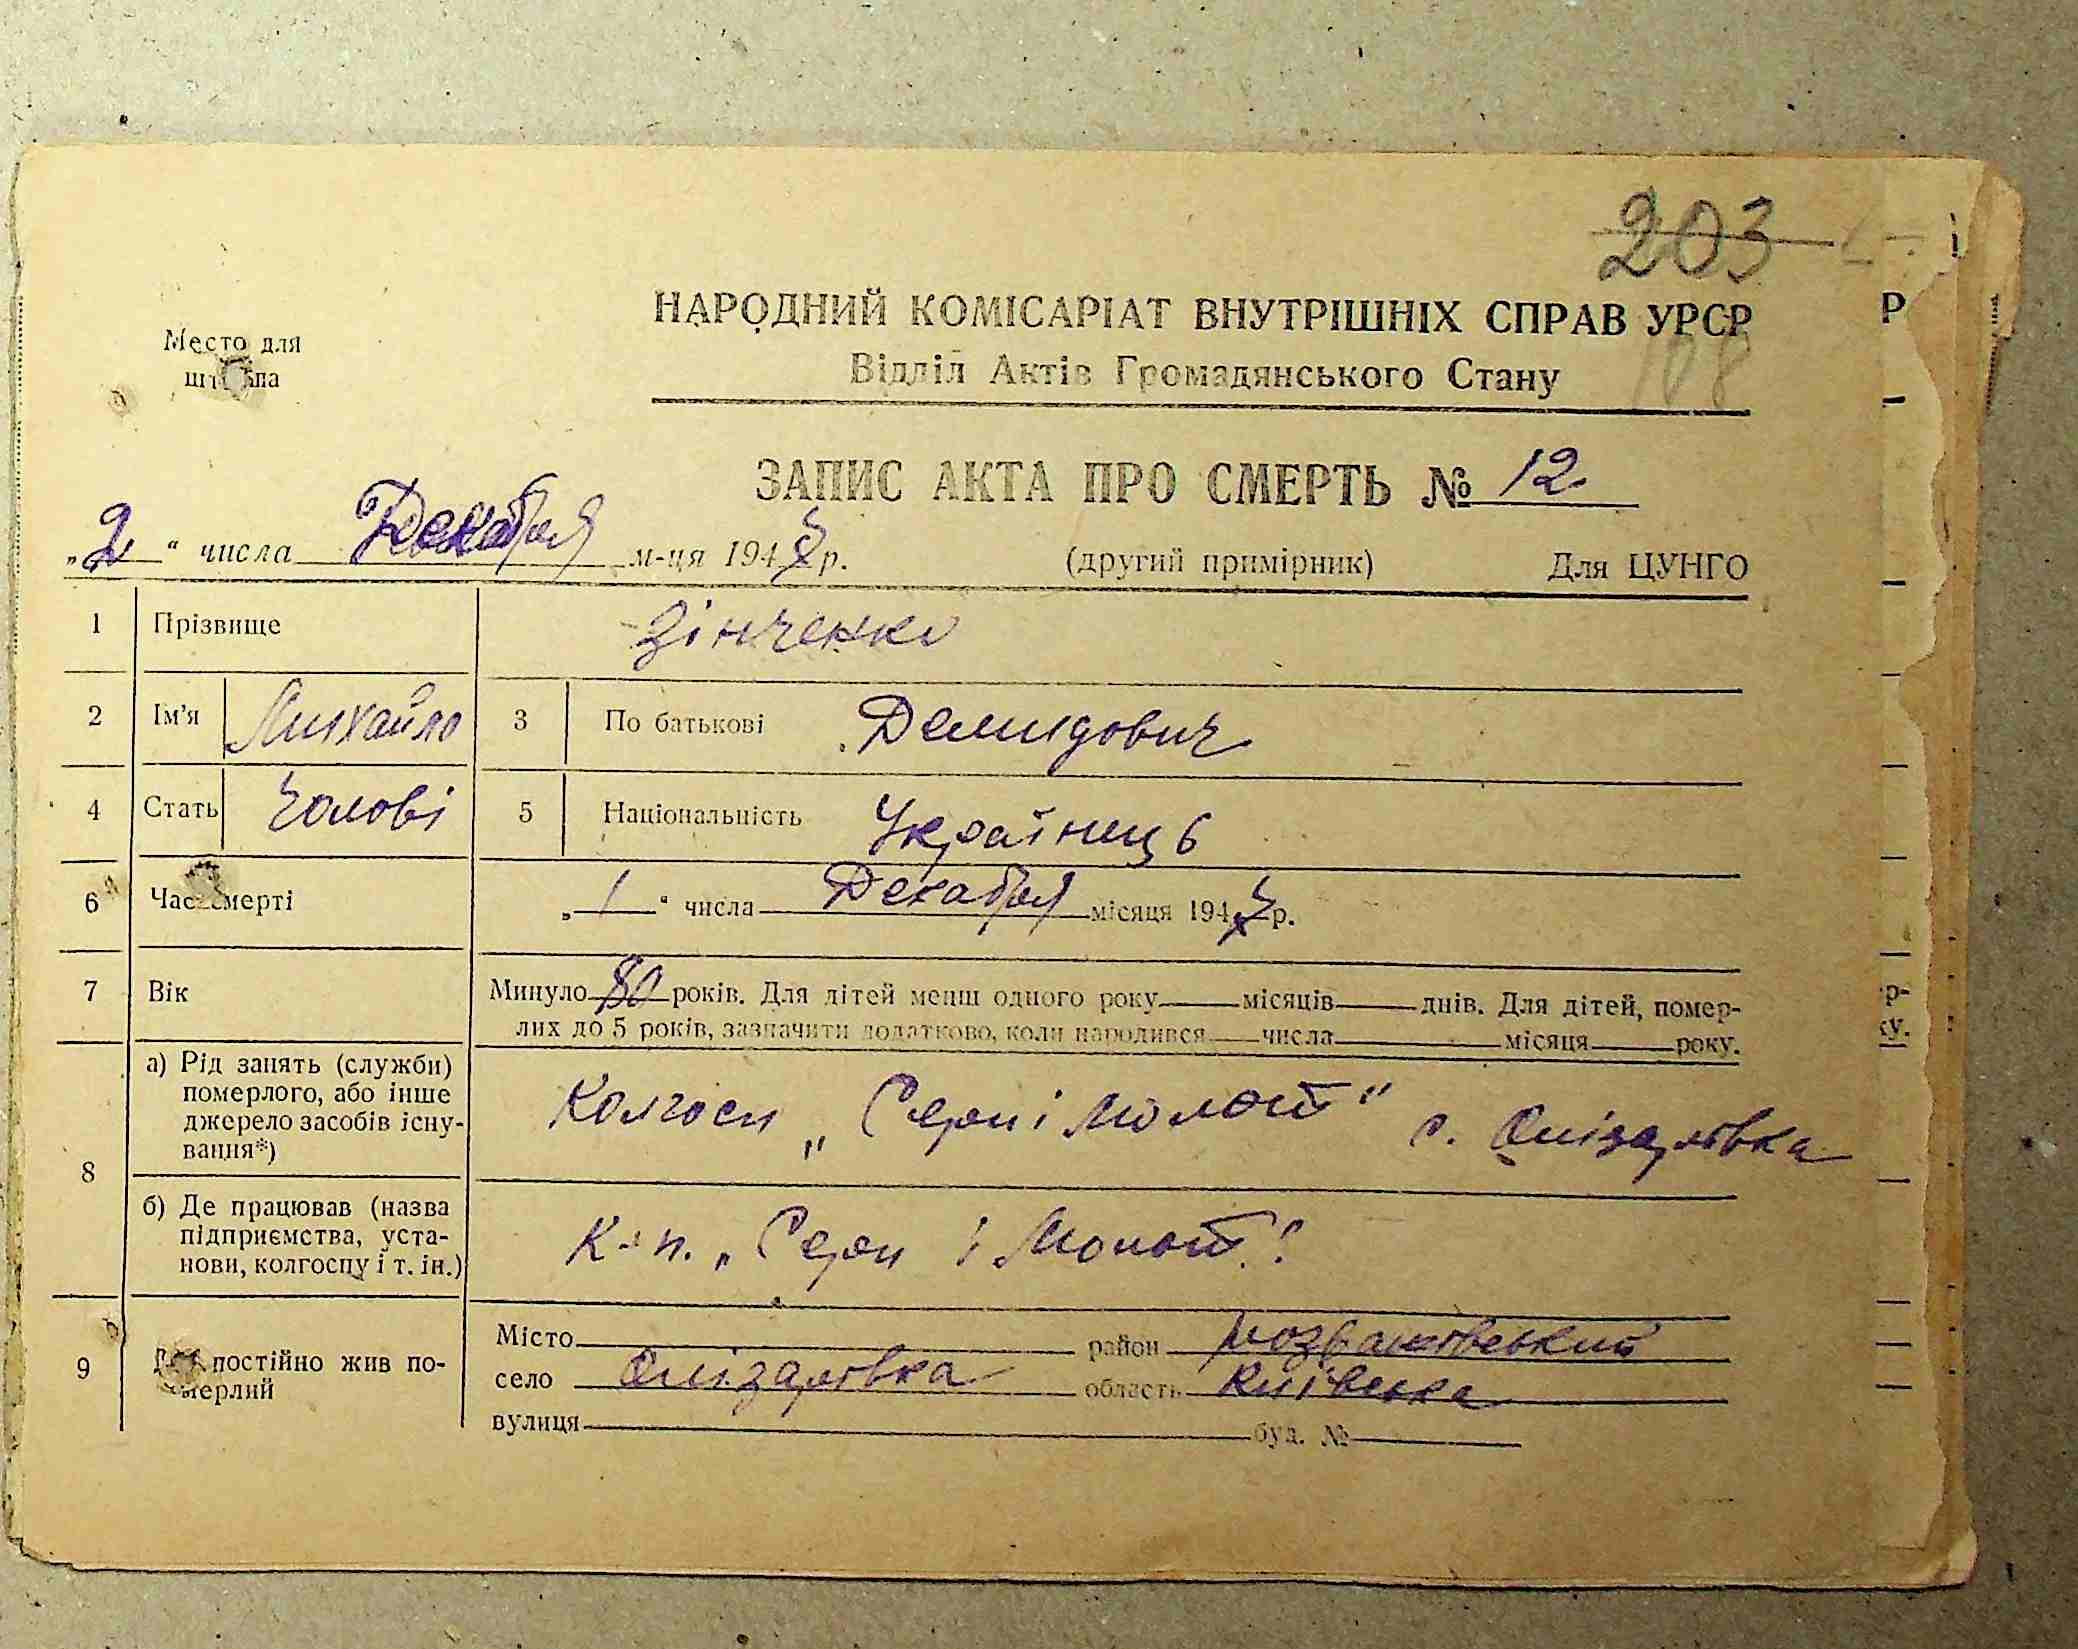 203
НАРОДНИЙ КОМІСАРІАТ ВНУТРІШНІХ СПРАВ УРСР
Место для
штампа
Відділ Актів Громадянського Стану
108
ЗАПИС АКТА ПРО СМЕРТЬ № 12
„2“ числа Декабря м-ця 194 р.
(другий примірник) Для ЦУНГО
1 Прізвище Зінченко
2 Ім'я Михайло 3 По батькові Демидович
4 Стать Чолові 5 Національність Українець
6 Час смерті „1“ числа Декабря місяця 194 р.
7 Вік Минуло 80 років. Для дітей менш одного року місяців днів. Для дітей, помер-
лих до 5 років, зазначити додатково, коли народився числа місяця року.
8 а) Рід занять (служби)
померлого, або інше
джерело засобів існу-
вання*)
Колгосп „Серп і Молот" с. Олізарівка
б) Де працював (назва
підприємства, уста-
нови, колгоспу і т. ін.)
К-п. „Серп і Молот".
9 Де постійно жив по-
мерлий
Місто район Розважівський
село Олізарівка область Київська
вулиця буд. №